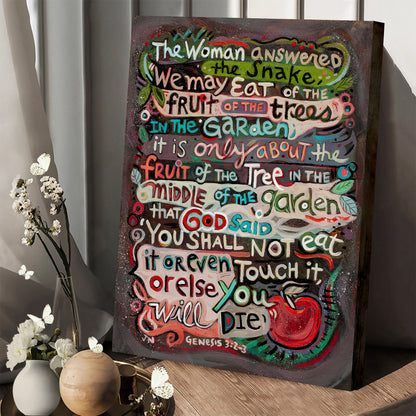 The Woman answered
the snake,
"We may Eat of the
fruit of the trees
in the Garden,
it is only about the
fruit of the Tree in the
middle of the garden
that God said
'You shall not eat
it or even Touch it,
or else you
will DIE!'
VN GENESIS 3:2-3